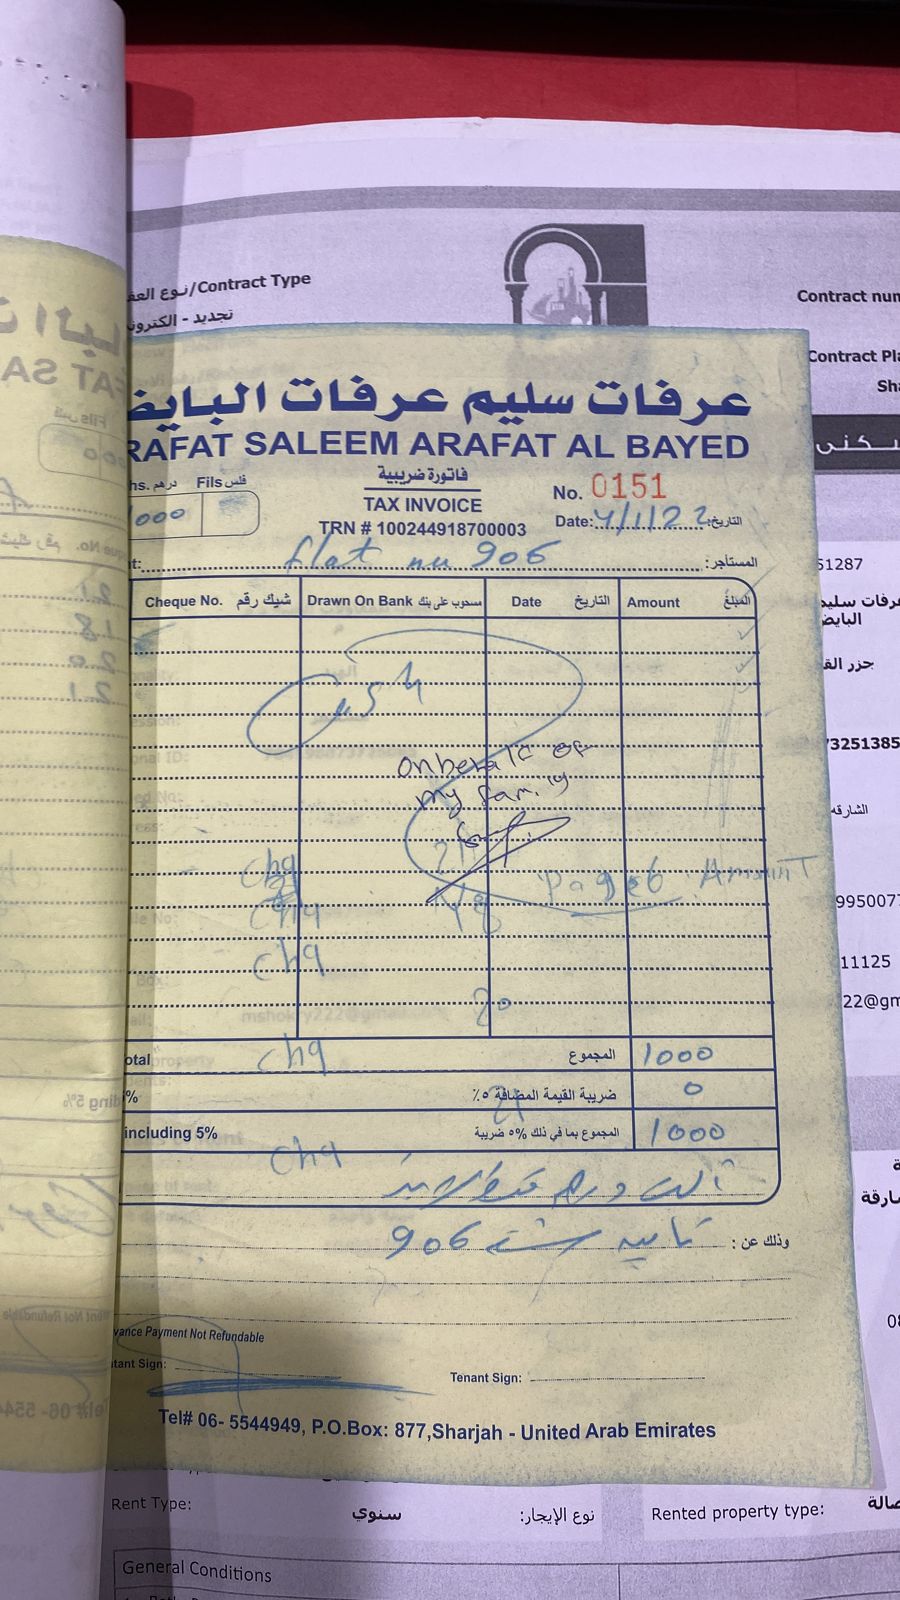 نوع العق/Contract Type
تجديد - الكترون
Contract num
Contract Pla
Sha
سكنى
عرفات سليم عرفات البايض
RAFAT SALEEM ARAFAT AL BAYED
hs. درهم Fils فلس
فاتورة ضريبية
TAX INVOICE
TRN # 100244918700003
No. 0151
Date: 4/1/22 التاريخ:
1000
t: flat nu 906 المستأجر:
51287
عرفات سليم
البايض
Cheque No. شيك رقم Drawn On Bank مسحوب على بنك Date التاريخ Amount المبلغ
cash
جزر الق
73251385
onbehalf of
my family
الشارقه
chq Page 6 Amount
chq 18
9950077
chq
11125
20
22@gm
mshokry222@gmail
otal chq المجموع 1000
% ضريبة القيمة المضافة ٥٪ 0
including 5% المجموع بما في ذلك ٥% ضريبة 1000
chq
الف درهم فقط لا غير
وذلك عن : تامين شقة 906
ارقة
vance Payment Not Refundable
tant Sign:
Tenant Sign:
Tel# 06- 5544949, P.O.Box: 877,Sharjah - United Arab Emirates
Rent Type: سنوي نوع الإيجار: Rented property type: صالة
General Conditions